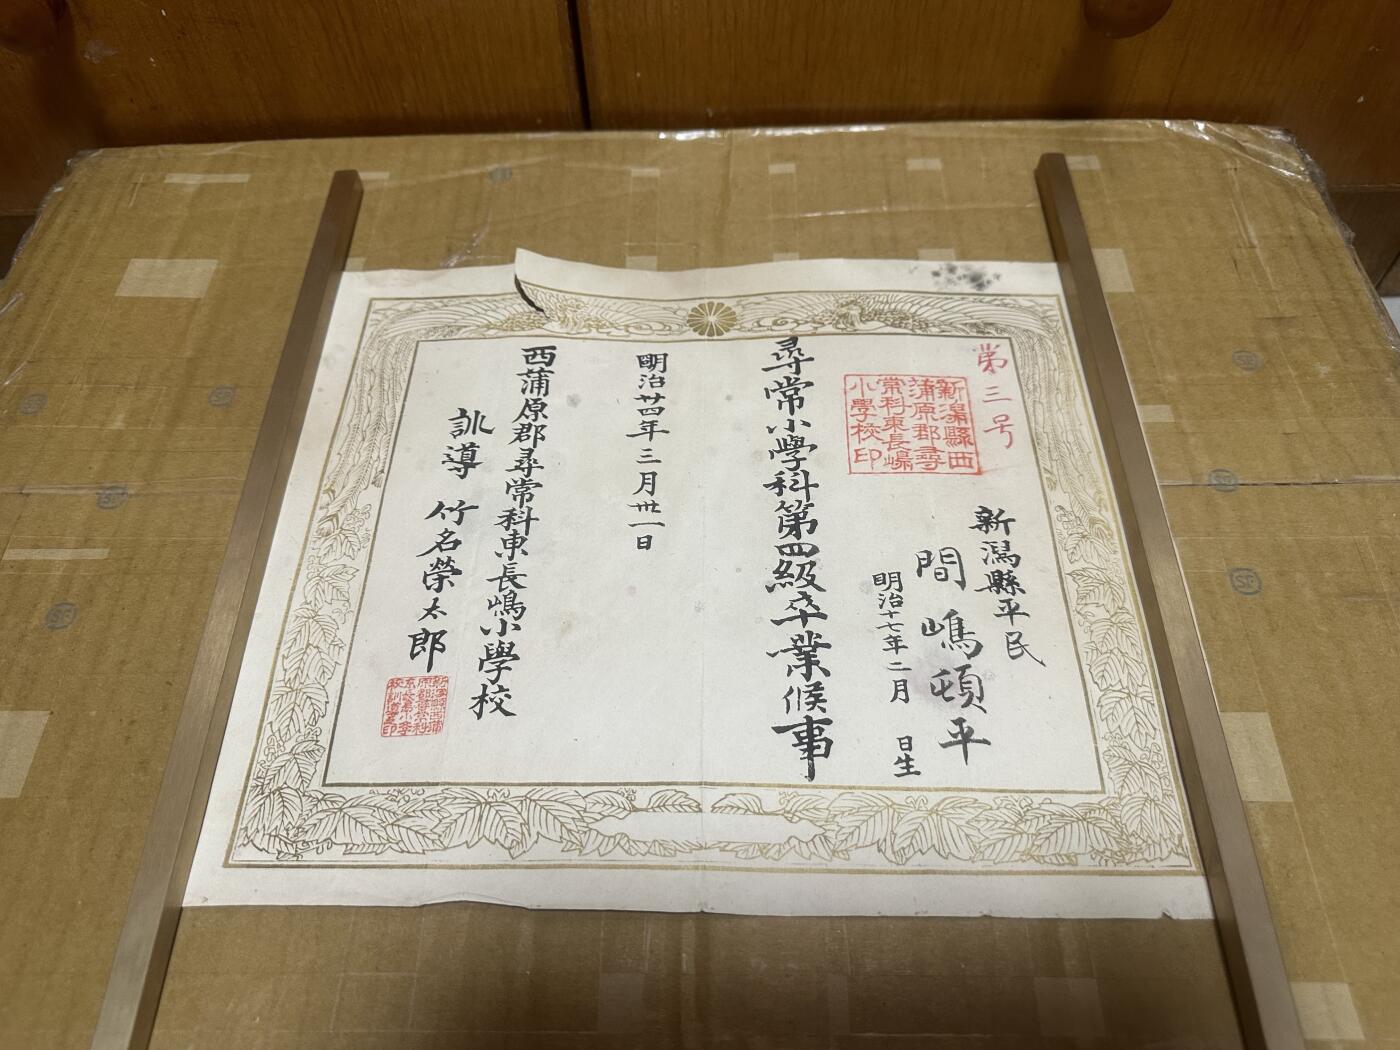 第三号
新潟縣西
蒲原郡尋
常科東長嶋
小學校印
新潟縣平民
間嶋頓平
明治十七年二月 日生
尋常小學科第四級卒業候事
明治廿四年三月卅一日
西蒲原郡尋常科東長嶋小學校
訓導 竹名榮太郎